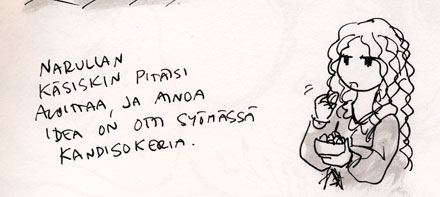 NARULLAN
KÄSISKIN PITÄISI
ALOITTAA, JA AINOA
IDEA ON OTTI SYÖMÄSSÄ
KANDISOKERIA.